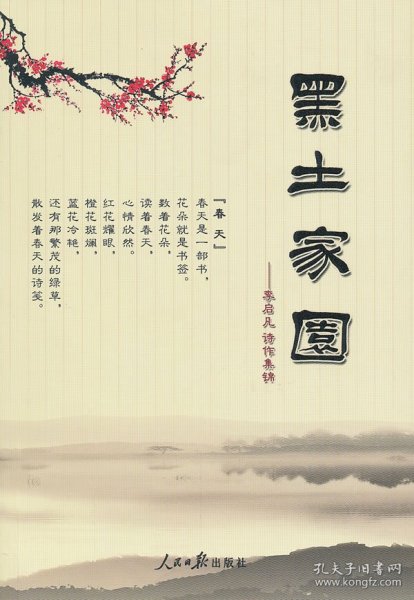 黑土家園
——李启凡 诗作集锦
『春天』
春天是一部书，
花朵就是书签。
数着花朵，
读着春天，
心情欣然。
红花耀眼，
橙花斑斓，
蓝花冷艳，
还有那繁茂的绿草，
散发着春天的诗笺。
人民日报出版社
孔夫子旧书网
www.kongfz.com